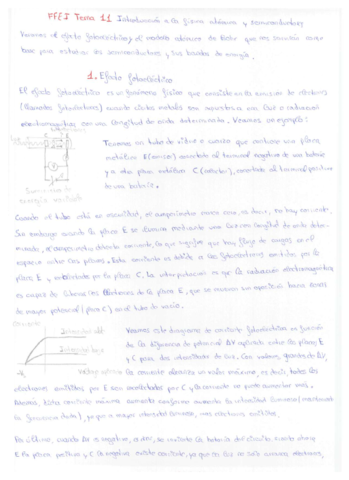 FFEI Tema 11 Introducción a la física atómica y semiconductores
Veremos el efecto fotoeléctrico y el modelo atómico de Bohr que nos servirán como
base para estudiar los semiconductores y sus bandas de energía.
1. Efecto fotoeléctrico
El efecto fotoeléctrico es un fenómeno físico que consiste en la emisión de electrones
(llamados fotoelectrones) cuando ciertos metales son expuestos a una luz o radiación
electromagnética con una longitud de onda determinada. Veamos un ejemplo:
Tenemos un tubo de vidrio o cuarzo que contiene una placa
metálica E (emisor) conectada al terminal negativo de una batería
y a otra placa metálica C (colector), conectada al terminal positivo
de una batería.
Cuando el tubo está en oscuridad, el amperímetro marca cero, es decir, no hay corriente.
Sin embargo cuando la placa E se ilumina mediante una luz con longitud de onda deter-
minada, el amperímetro detecta corriente, lo que significa que hay flujo de cargas en el
espacio entre las placas. Esta corriente es debida a los fotoelectrones emitidos por la
placa E y recibidos por la placa C. La interpretación es que la radiación electromagnética
es capaz de liberar los electrones de la placa E, que se mueven
de mayor potencial (placa C) en el tubo de vacío.
Corriente
Intensidad alta
Intensidad baja
Veamos este diagrama de corriente fotoeléctrica en función
de la diferencia de potencial ΔV aplicada entre las placas E
y C para dos intensidades de luz. Con valores grandes de ΔV,
la corriente alcanza un valor máximo, es decir, todos los
electrones emitidos por E son recolectados por C y la corriente no puede aumentar más.
Además, esta corriente máxima aumenta conforme aumenta la intensidad luminosa (manteniendo
la frecuencia dada), ya que a mayor intensidad luminosa, más electrones emitidos.
Por último, cuando ΔV es negativo, es decir, se invierte la batería del circuito siendo ahora
E la placa positiva y C la negativa existe corriente, ya que la luz